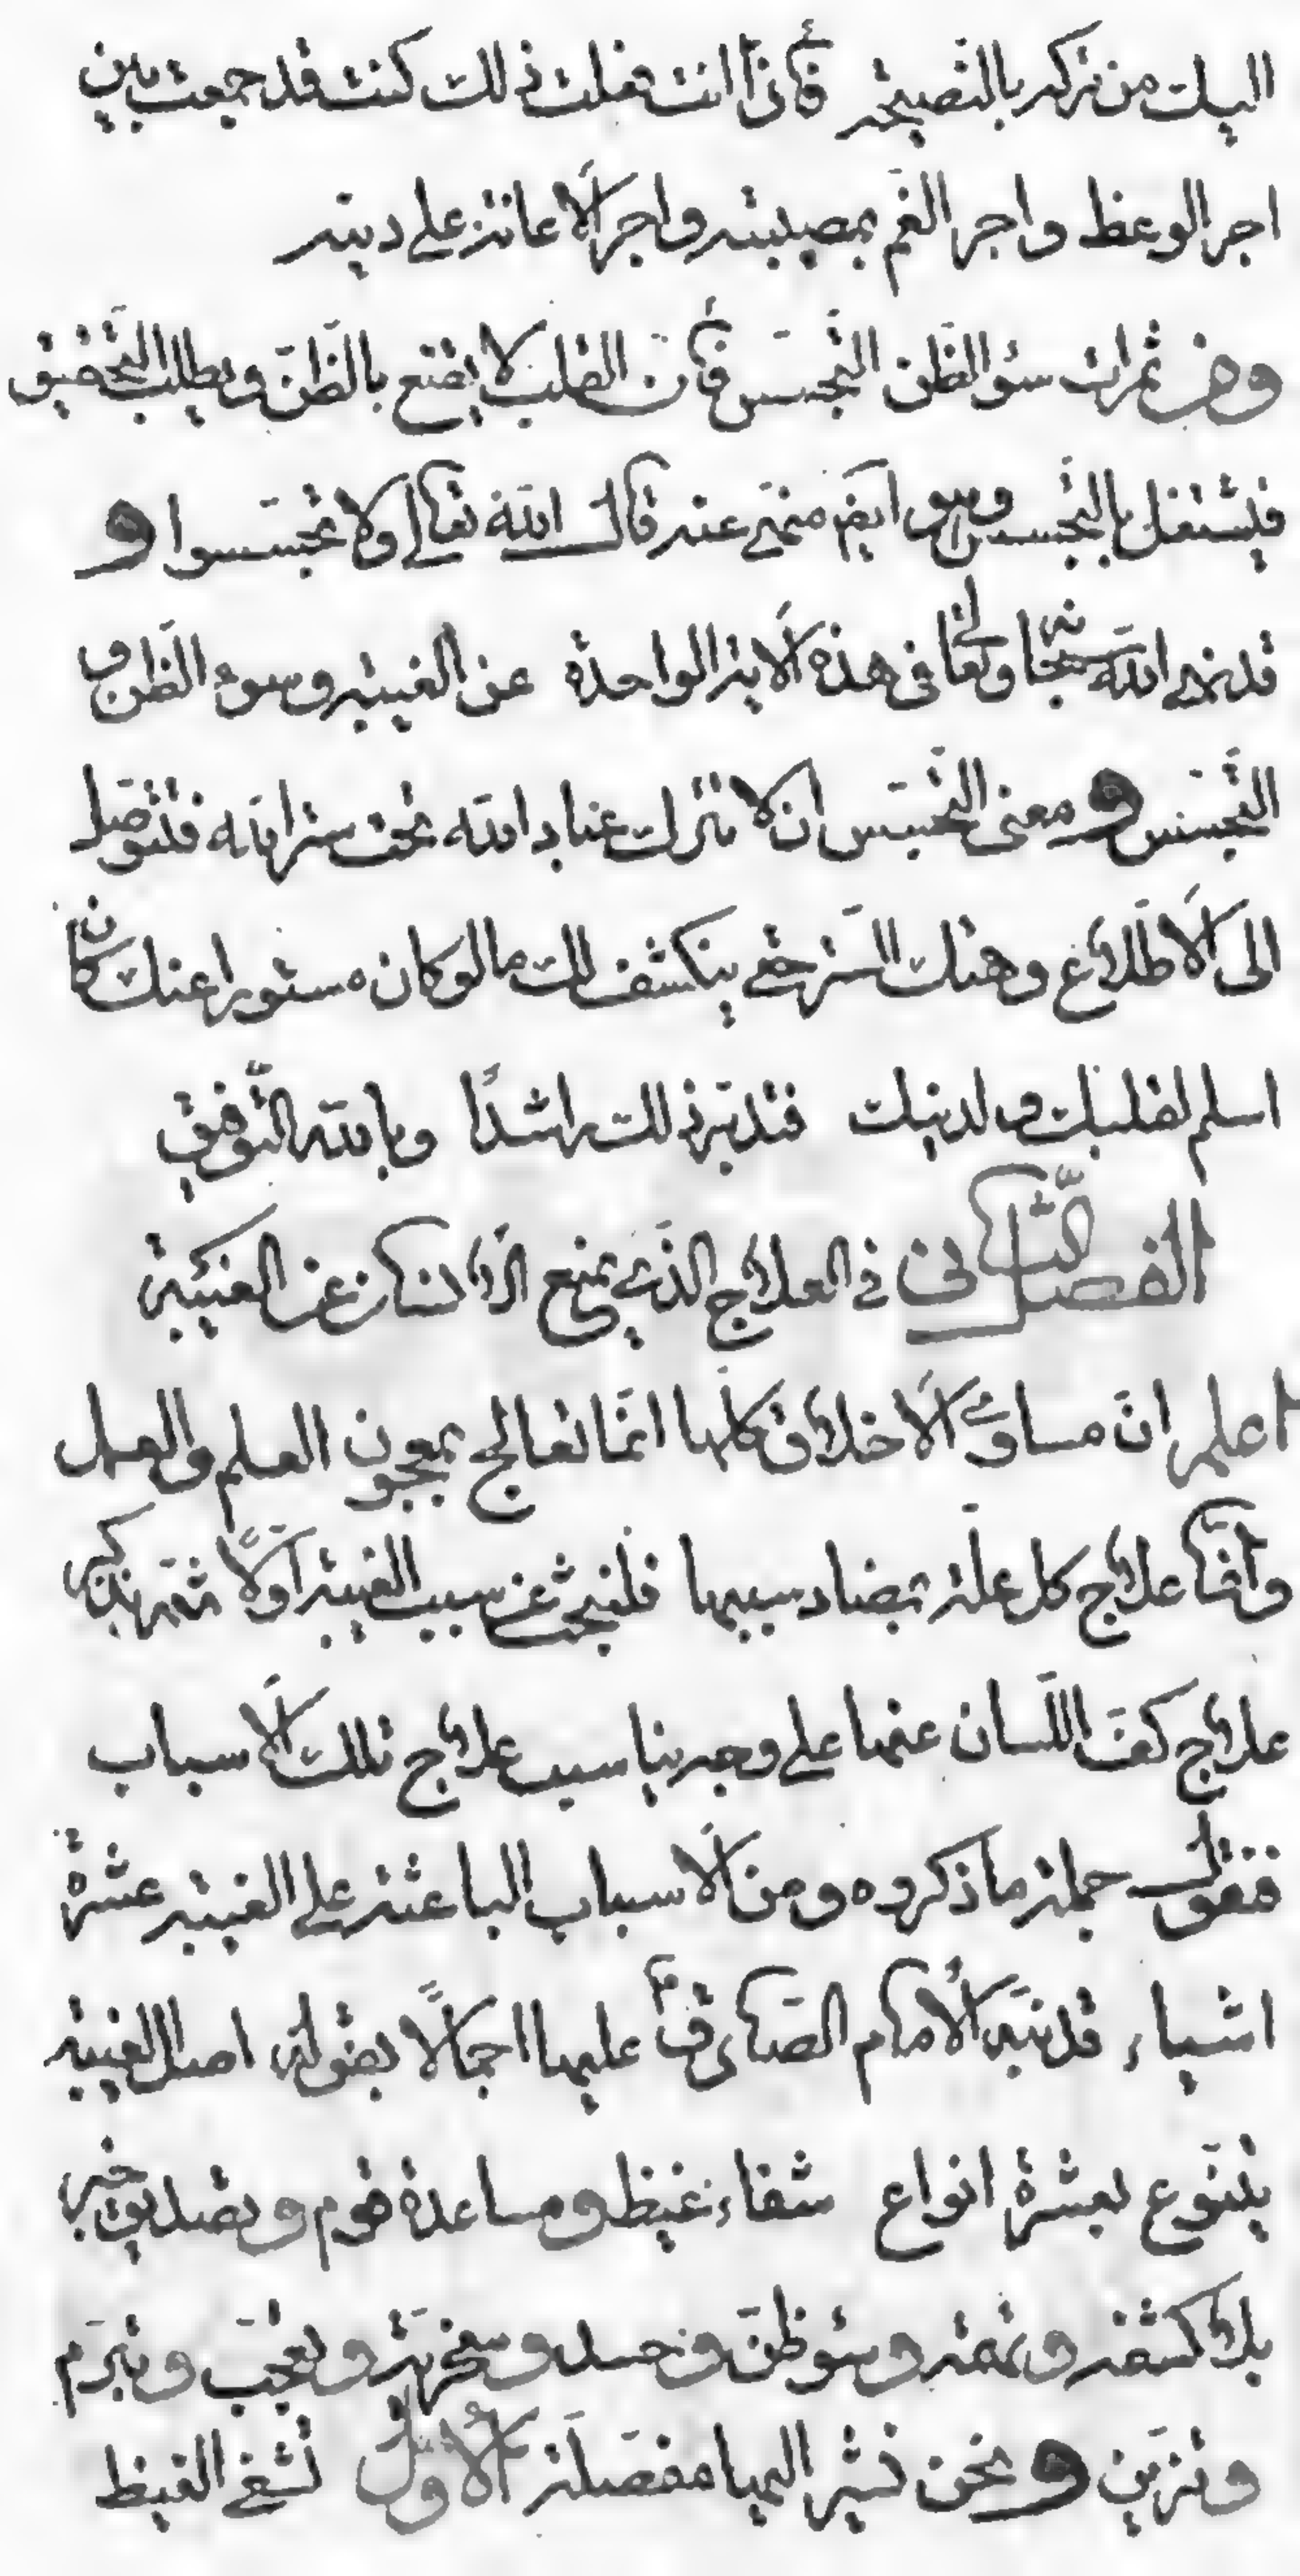 اليك من تركه بالنصيحة فاذا انت فعلت ذلك كنت قد جمعت بين
اجر الوعظ واجر الغم بمصيبته واجر الاعانة على دينه
ومن ثمرات سوء الظن التجسس فان القلب لا يقنع بالظن ويطلب التحقيق
فيشتغل بالتجسس وهو ايضم منهى عنه قال الله تعالى ولا تجسسوا و
قد نهى الله سبحانه وتعالى فى هذه الاية الواحدة عن الغيبة وسوء الظن و
التجسس و معنى التجسس ان لا تترك عباد الله تحت ستر الله فتتوصل
الى الاطلاع وهتك الستر حتى ينكشف لك ما لو كان مستورا عنك كان
اسلم لقلبك ولدينك فتدبر ذلك راشدًا وبالله التوفيق
الفصل الثانى فى العلاج الذى يمنع الانسان عن الغيبة
اعلم ان مساوى الاخلاق كلها انما تعالج بمعجون العلم والعمل
وانما علاج كل علة بمضاد سببها فلنبحث عن سبب الغيبة اولًا ثم نذكر
علاج كف اللسان عنها على وجه يناسب علاج تلك الاسباب
فنقول جملة ما ذكروه ومن الاسباب الباعثة على الغيبة عشرة
اشياء قد نبه الامام الصادق ع عليها اجمالًا بقوله اصل الغيبة
يتنوع بعشرة انواع شفاء غيظ ومساعدة قوم وتصديق خبر
بلا كشفه وتهمة وسوء ظن وحسد وسخرية وتعجب وتبرم
وتزين و نحن نشير اليها مفصلة الاول تشفى الغيظ